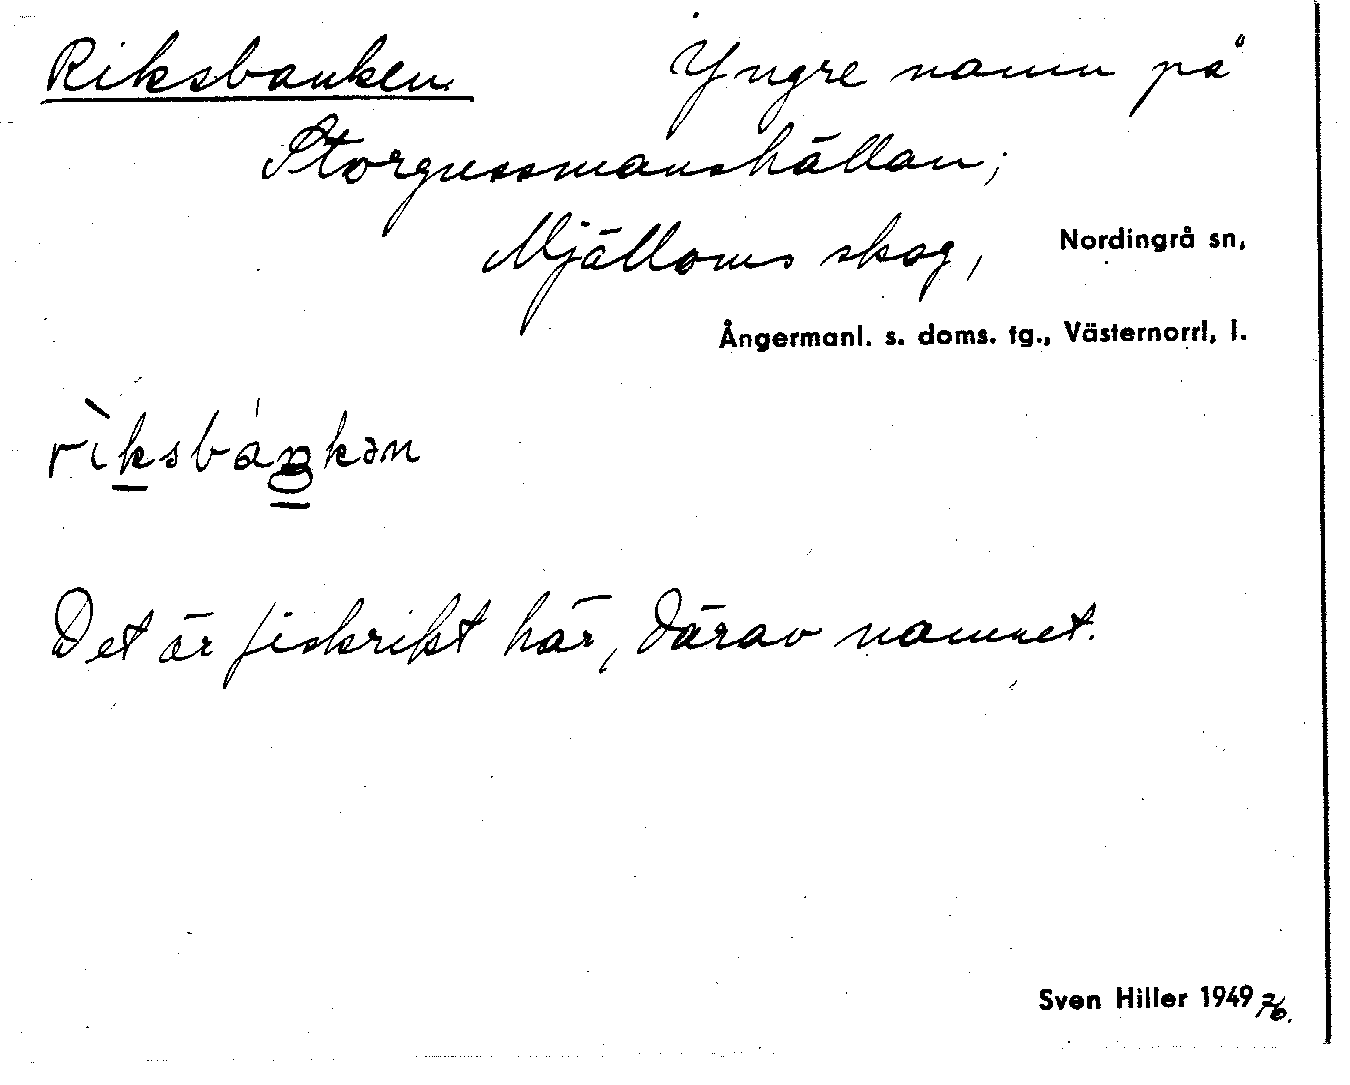 Riksbanken. Yngre namn på
Storgussmanshällan;
Mjälloms skog, Nordingrå sn,
Ångermanl. s. doms. tg., Västernorrl. l.
rìksbáŋkən
Det är fiskrikt här, därav namnet.
Sven Hiller 1949